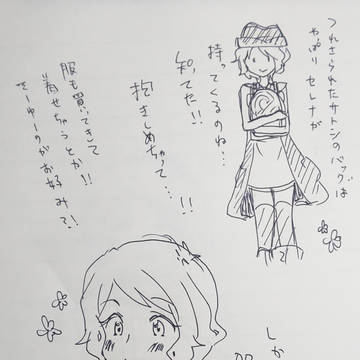 つれさられたサトシのバッグは
やっぱりセレナが
持ってくるのね…
知ってた!!
抱きしめちゃって…!!
服も買ってきて
着せちゃうとか!!
どーゆーのがお好み?!
しか